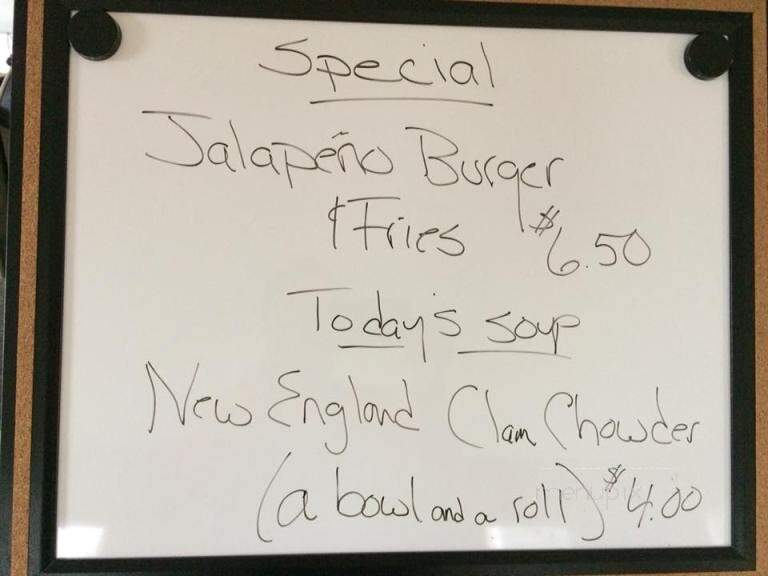 Special
Jalapeño Burger
& Fries $6.50
Today's soup
New England Clam Chowder
(a bowl and a roll) $4.00
menupix